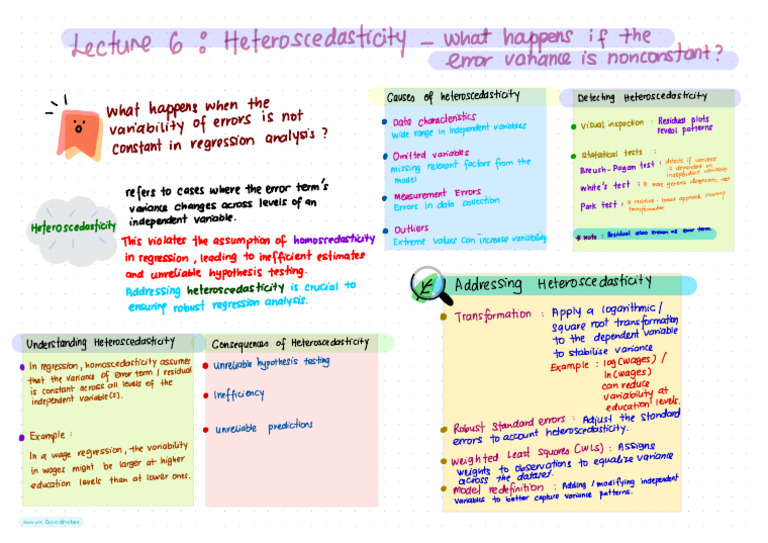 Lecture 6 : Heteroscedasticity - what happens if the
error variance is nonconstant?
What happens when the
variability of errors is not
constant in regression analysis ?
Heteroscedasticity
refers to cases where the error term's
variance changes across levels of an
independent variable.
This violates the assumption of homoscedasticity
in regression, leading to inefficient estimates
and unreliable hypothesis testing.
Addressing heteroscedasticity is crucial to
ensuring robust regression analysis.
Causes of heteroscedasticity
Data characteristics
Wide range in independent variables
Omitted variables
missing relevant factors from the
model
Measurement Errors
Errors in data collection
Outliers
Extreme values can increase variability
Detecting Heteroscedasticity
Visual inspection : Residual plots
reveal patterns
Statistical tests :
Breush-Pagan test : detects if variance
is dependent on
independent variable
White's test : A more general
Park test : A residual-based approach involving
transformation
* Note : Residual also known as error term.
Understanding Heteroscedasticity
In regression, homoscedasticity assumes
that the variance of error term / residual
is constant across all levels of the
independent variable(s).
Example :
In a wage regression, the variability
in wages might be larger at higher
education levels than at lower ones.
Consequences of Heteroscedasticity
Unreliable hypothesis testing
Inefficiency
Unreliable predictions
Addressing Heteroscedasticity
Transformation : Apply a logarithmic /
square root transformation
to the dependent variable
to stabilise variance
Example : log(wages) /
ln(wages)
can reduce
variability at
education levels.
Robust Standard errors : Adjust the standard
errors to account heteroscedasticity.
Weighted Least Squares (WLS) : Assigns
weights to observations to equalize variance
across the dataset.
Model redefinition : Adding / modifying independent
variables to better capture variance patterns.
Made with Goodnotes